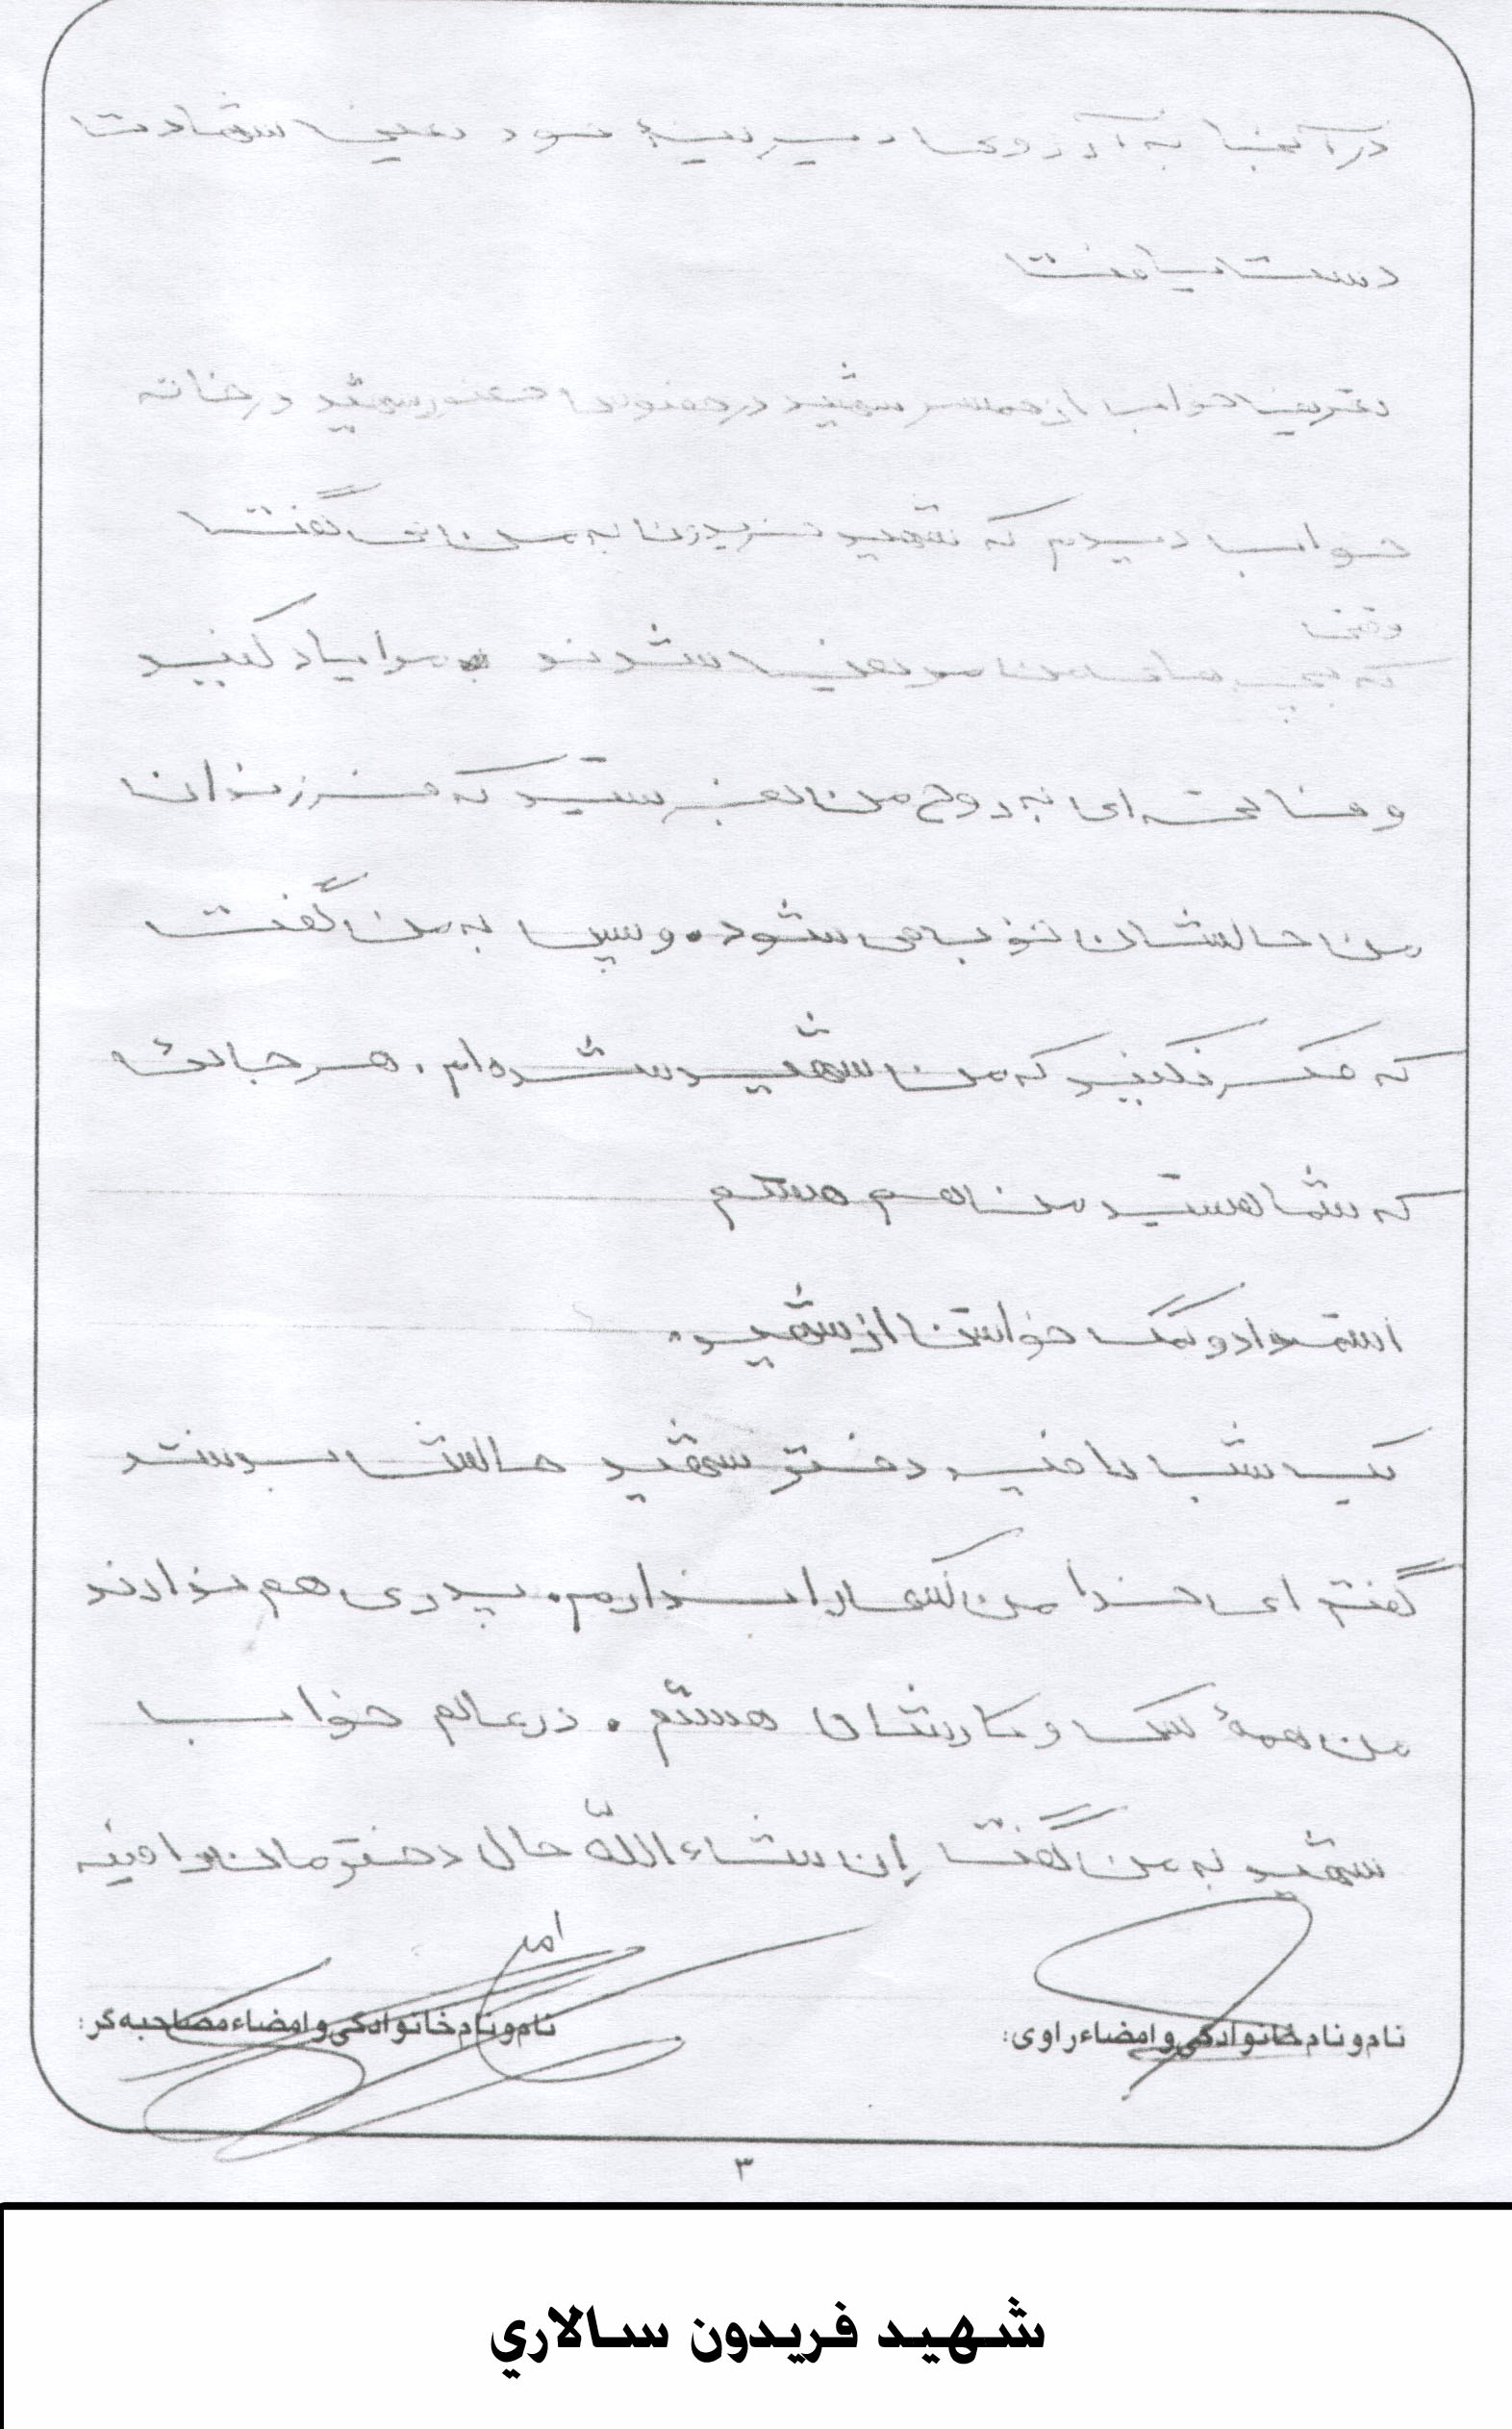 در آنجا به آرزوی دیرینهٔ خود یعنی شهادت
دست یافت
تعریف خواب از همسر شهید در خصوص حضور شهید در خانه
خواب دیدم که شهید فریدون به من می گفت
وقتی
که بچه های من مریض شدند مرا یاد کنید
و فاتحه ای به روح من بفرستید که فرزندان
من حالشان خوب می شود. و سپس به من گفت
که فکر نکنید که من شهید شده ام. هر جائی
که شما هستید من هم هستم
استمداد و کمک خواستن از شهید.
یک شب راضیه دختر شهید حالش بد شد
گفتم ای خدا من کسی را ندارم. پدری هم ندارند
من همهٔ کس و کارشان هستم. در عالم خواب
شهید به من گفت إن شاء الله حال دخترمان راضیه
نام و نام خانوادگی و امضاء راوی:
نام و نام خانوادگی و امضاء مصاحبه گر:
۳
شهيد فريدون سالاري